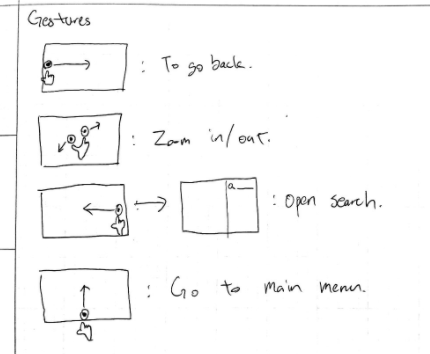 Gestures
: To go back.
: Zoom in/out.
a
: Open search.
: Go to main menu.